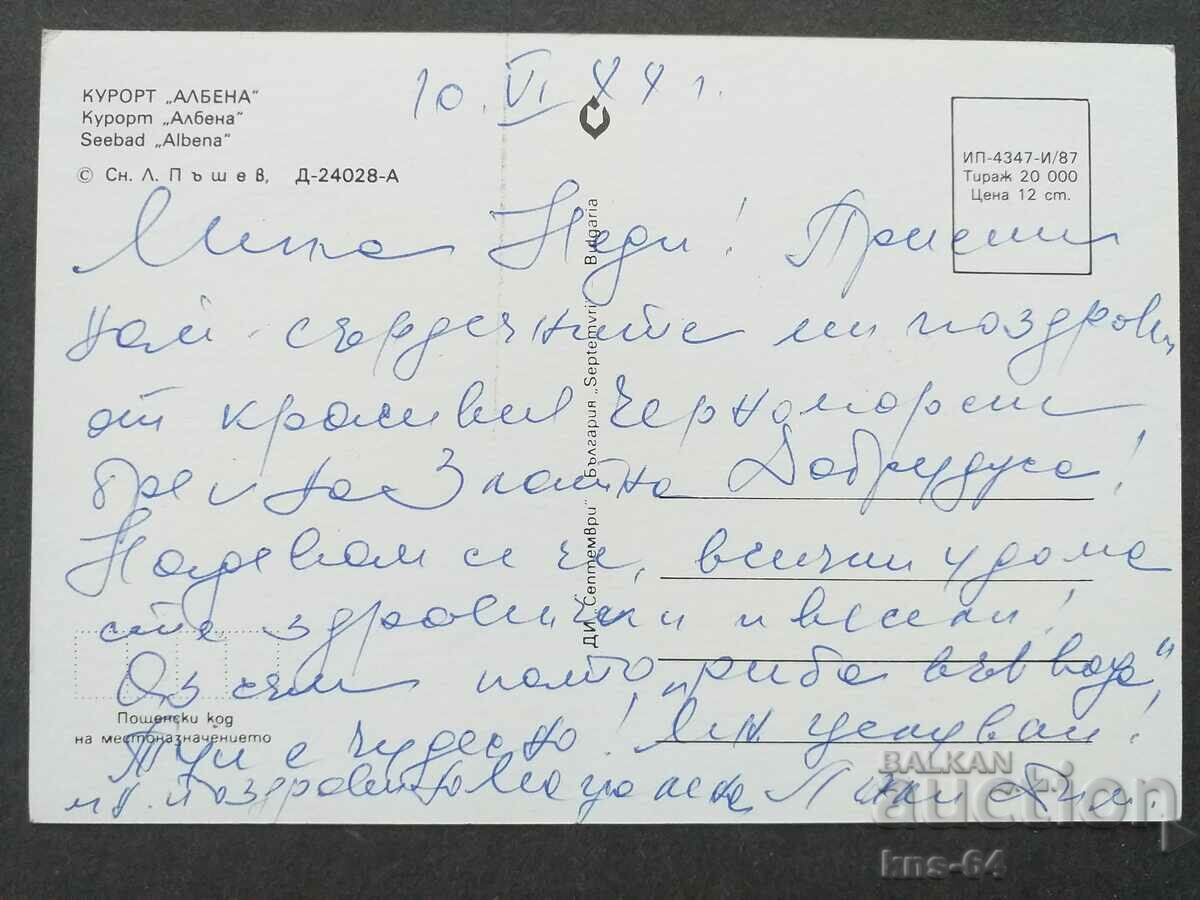 10. VI 88 г.
КУРОРТ „АЛБЕНА"
Курорт „Албена"
Seebad „Albena"
© Сн. Л. Пъшев, Д-24028-А
ИП-4347-И/87
Тираж 20 000
Цена 12 ст.
ДИ „Септември" България „Septemvri" Bulgaria
Мила Неди! Приеми
най-сърдечните ми поздрави
от красивия Черноморски
бряг на Златна Добруджа!
Надявам се че, всички у дома
сте здравички и весели!
Аз съм като „риба във вода",
Тук е чудесно! целувам!
мн. поздрави на
Пощенски код
на местоназначението
BALKAN
auction
kns-64